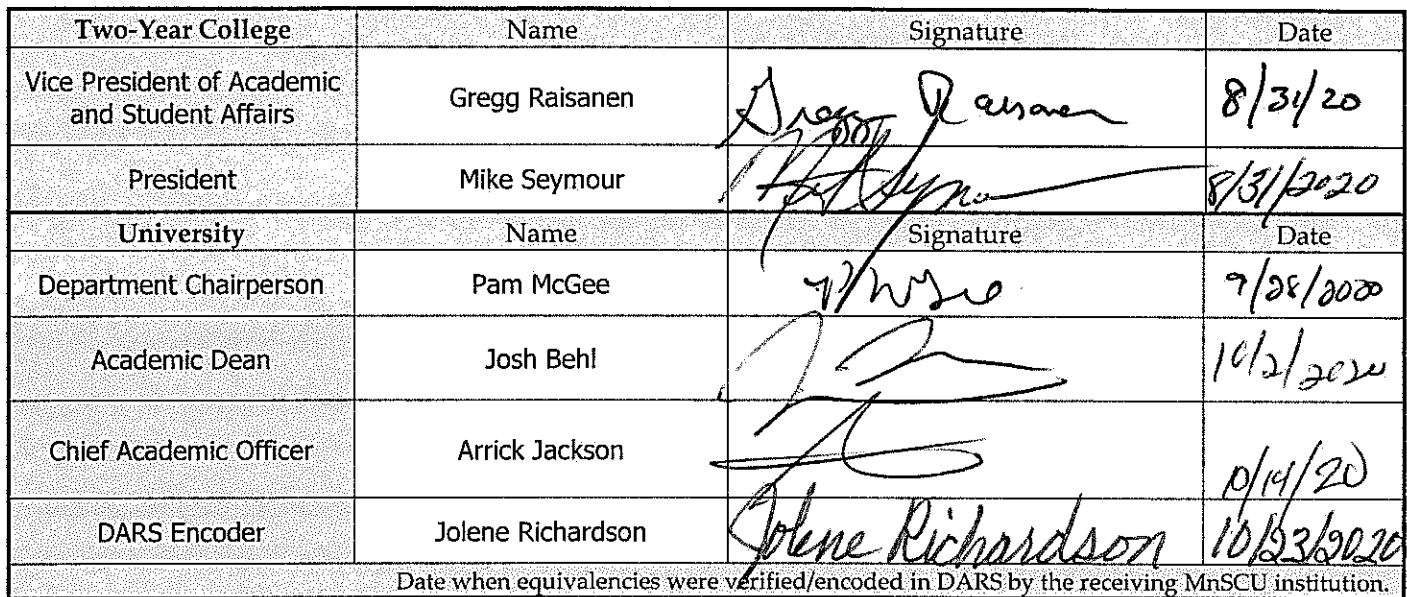 Two-Year College Name Signature Date
Vice President of Academic
and Student Affairs Gregg Raisanen Gregg Raisanen 8/31/20
President Mike Seymour 8/31/2020
University Name Signature Date
Department Chairperson Pam McGee PMcGee 9/28/2020
Academic Dean Josh Behl 10/2/2020
Chief Academic Officer Arrick Jackson 10/14/20
DARS Encoder Jolene Richardson Jolene Richardson 10/23/2020
Date when equivalencies were verified/encoded in DARS by the receiving MnSCU institution.